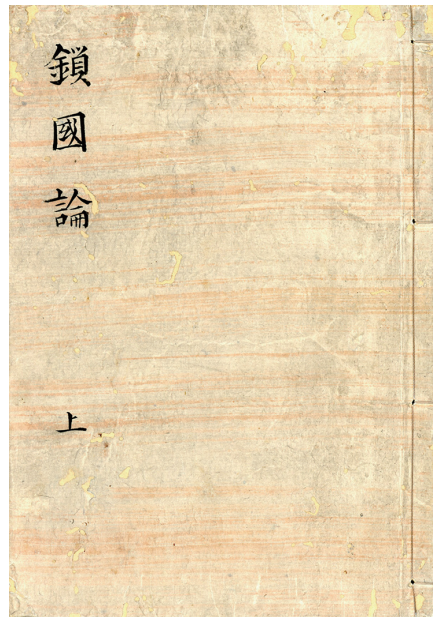 鎖國論 上